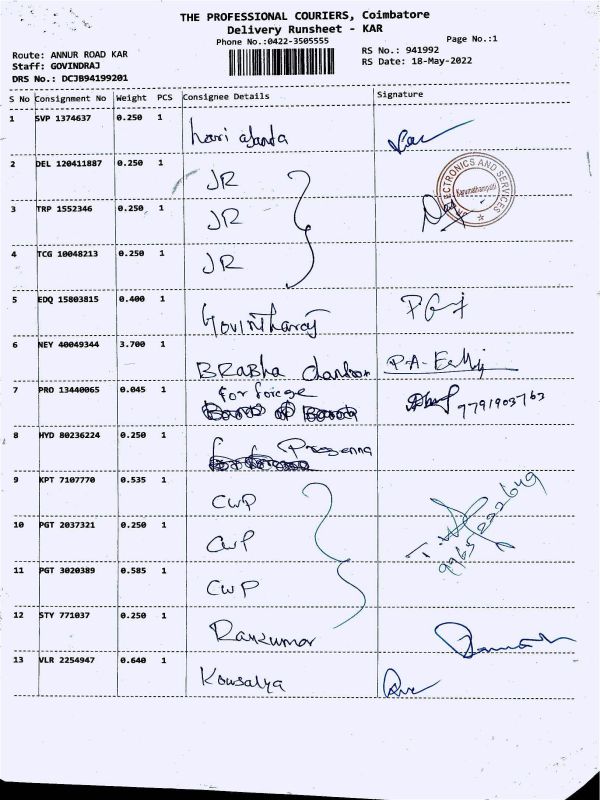 THE PROFESSIONAL COURIERS, Coimbatore
Delivery Runsheet - KAR
Phone No.:0422-3505555
Page No.:1
Route: ANNUR ROAD KAR
RS No.: 941992
Staff: GOVINDRAJ
RS Date: 18-May-2022
DRS No.: DCJB94199201
S No Consignment No Weight PCS Consignee Details Signature
1 SVP 1374637 0.250 1
2 DEL 120411887 0.250 1 JR
3 TRP 1552346 0.250 1 JR
ELECTRONICS AND SERVICES
4 TCG 10048213 0.250 1 JR
5 EDQ 15803815 0.400 1 Govintharaj
6 NEY 40049344 3.700 1 BRabha
7 PRO 13440065 0.045 1 7791903763
8 HYD 80236224 0.250 1 Prasenna
9 KPT 7107770 0.535 1 CWP
10 PGT 2037321 0.250 1 CWP
11 PGT 3020389 0.585 1 CWP
12 STY 771037 0.250 1 Ramkumar
13 VLR 2254947 0.640 1 Kousalya